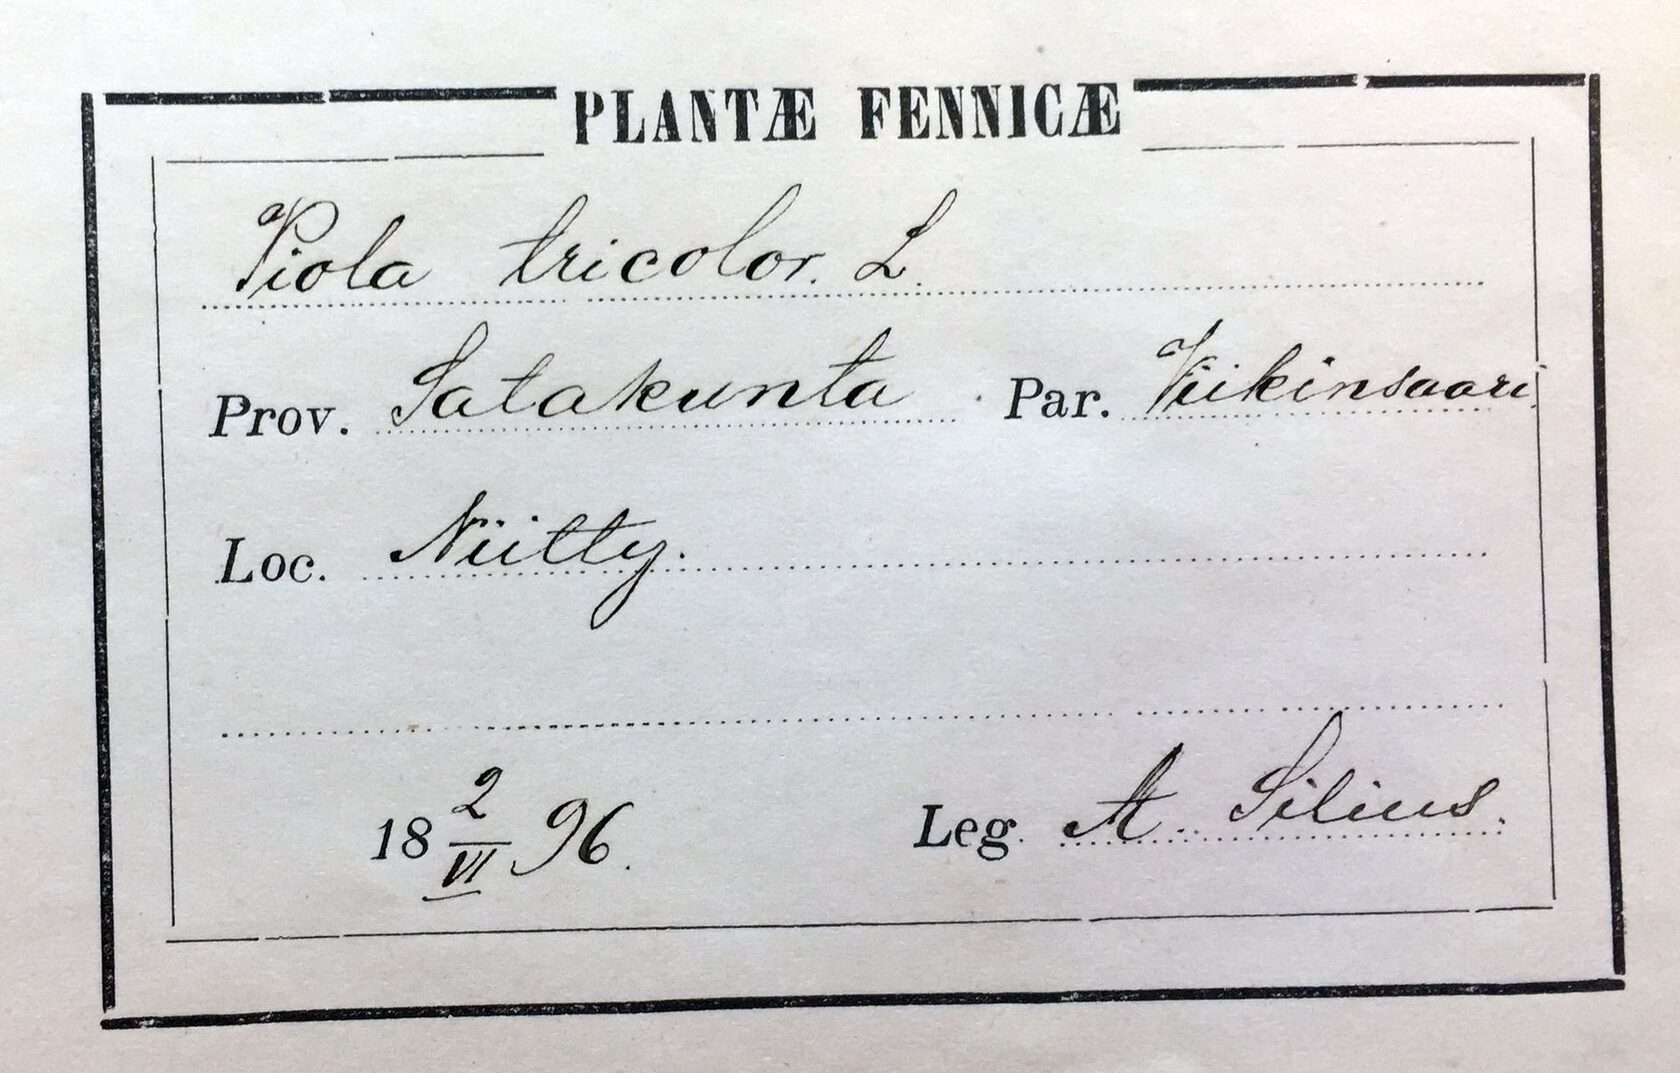 PLANTÆ FENNICÆ
Viola tricolor. L.
Prov. Satakunta Par. Viikinsaari
Loc. Niitty.
18 2/VI 96.
Leg. A. Silius.